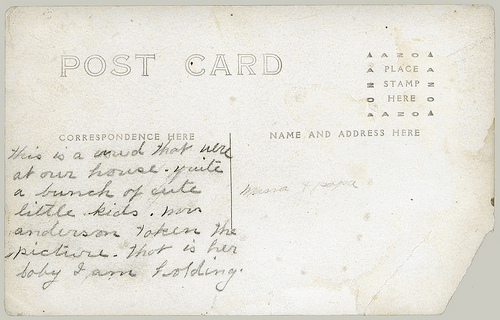 POST CARD
AZO
PLACE
STAMP
HERE
AZO
CORRESPONDENCE HERE
NAME AND ADDRESS HERE
this is a crowd that were
at our house. quite
a bunch of cute
little kids. mrs
anderson taken the
picture. that is her
baby I am holding.
mama & papa